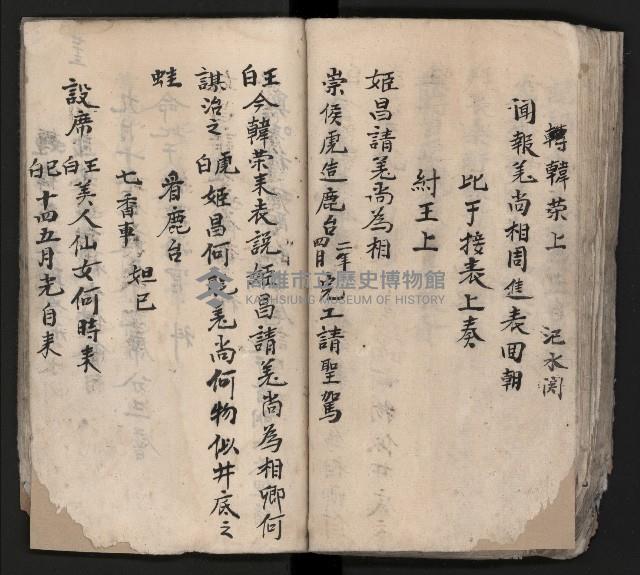 轉韓荣上 汜水関
闻報羌尚相周進表回朝
比干接表上奏
紂王上
姬昌請羌尚為相
崇侯虎造鹿台二年四月完工請聖駕
王白今韓荣来表說姬昌請羌尚為相卿何
謀治之虎白姬昌何羌尚何物似井底之
蛙 看鹿台
七香車 妲己
設席王白美人仙女何時来
己白十四五月光自来
高雄市立歷史博物館
KAOHSIUNG MUSEUM OF HISTORY